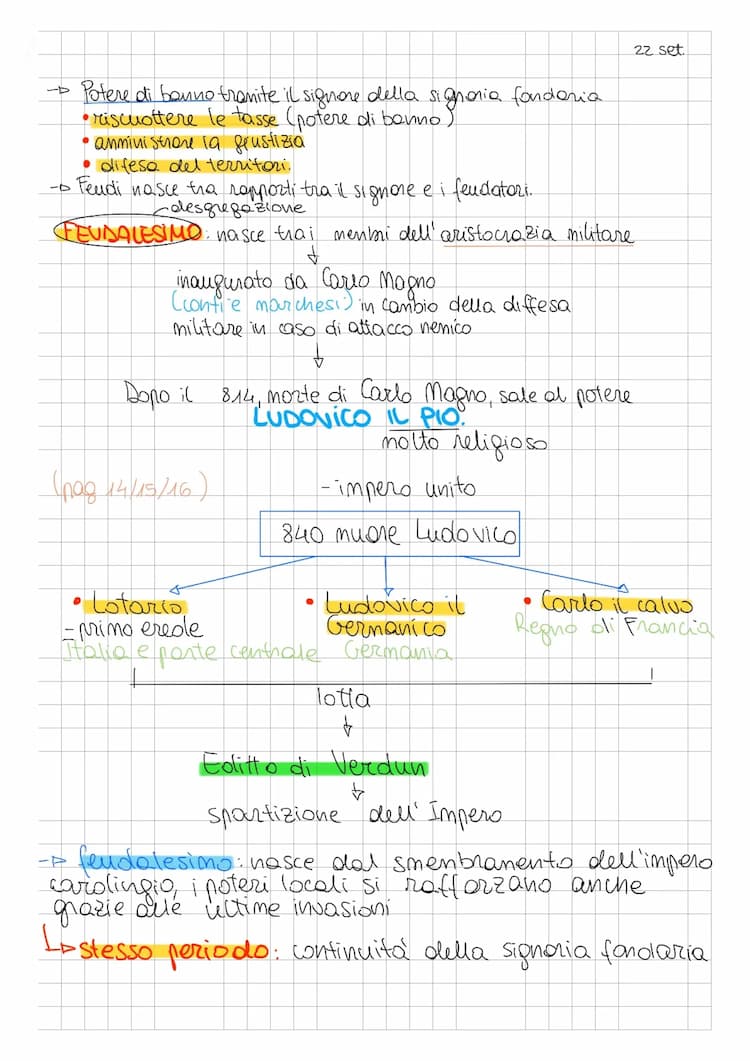 22 set.
→ Potere di banno tramite il signore della signoria fondaria
• riscuottere le tasse (potere di banno)
• amministrare la giustizia
• difesa del territori.
→ Feudi nasce tra rapporti tra il signore e i feudatori.
desgregazione
FEUDALESIMO: nasce trai membri dell'aristocrazia militare
inaugurato da Carlo Magno
(conti e marchesi) in cambio della diffesa
militare in caso di attacco nemico
Dopo il 814, morte di Carlo Magno, sale al potere
LUDOVICO IL PIO.
molto religioso
(pag 14/15/16)
- impero unito
840 muore Ludovico
• Lotario
- primo erede
Italia e parte centrale
• Ludovico il
Germanico
Germania
• Carlo il calvo
Regno di Francia
lotta
Editto di Verdun
spartizione dell'Impero
→ feudalesimo: nasce dal smembramento dell'impero
carolingio, i poteri locali si rafforzano anche
grazie alle ultime invasioni
↳ stesso periodo: continuità della signoria fondaria